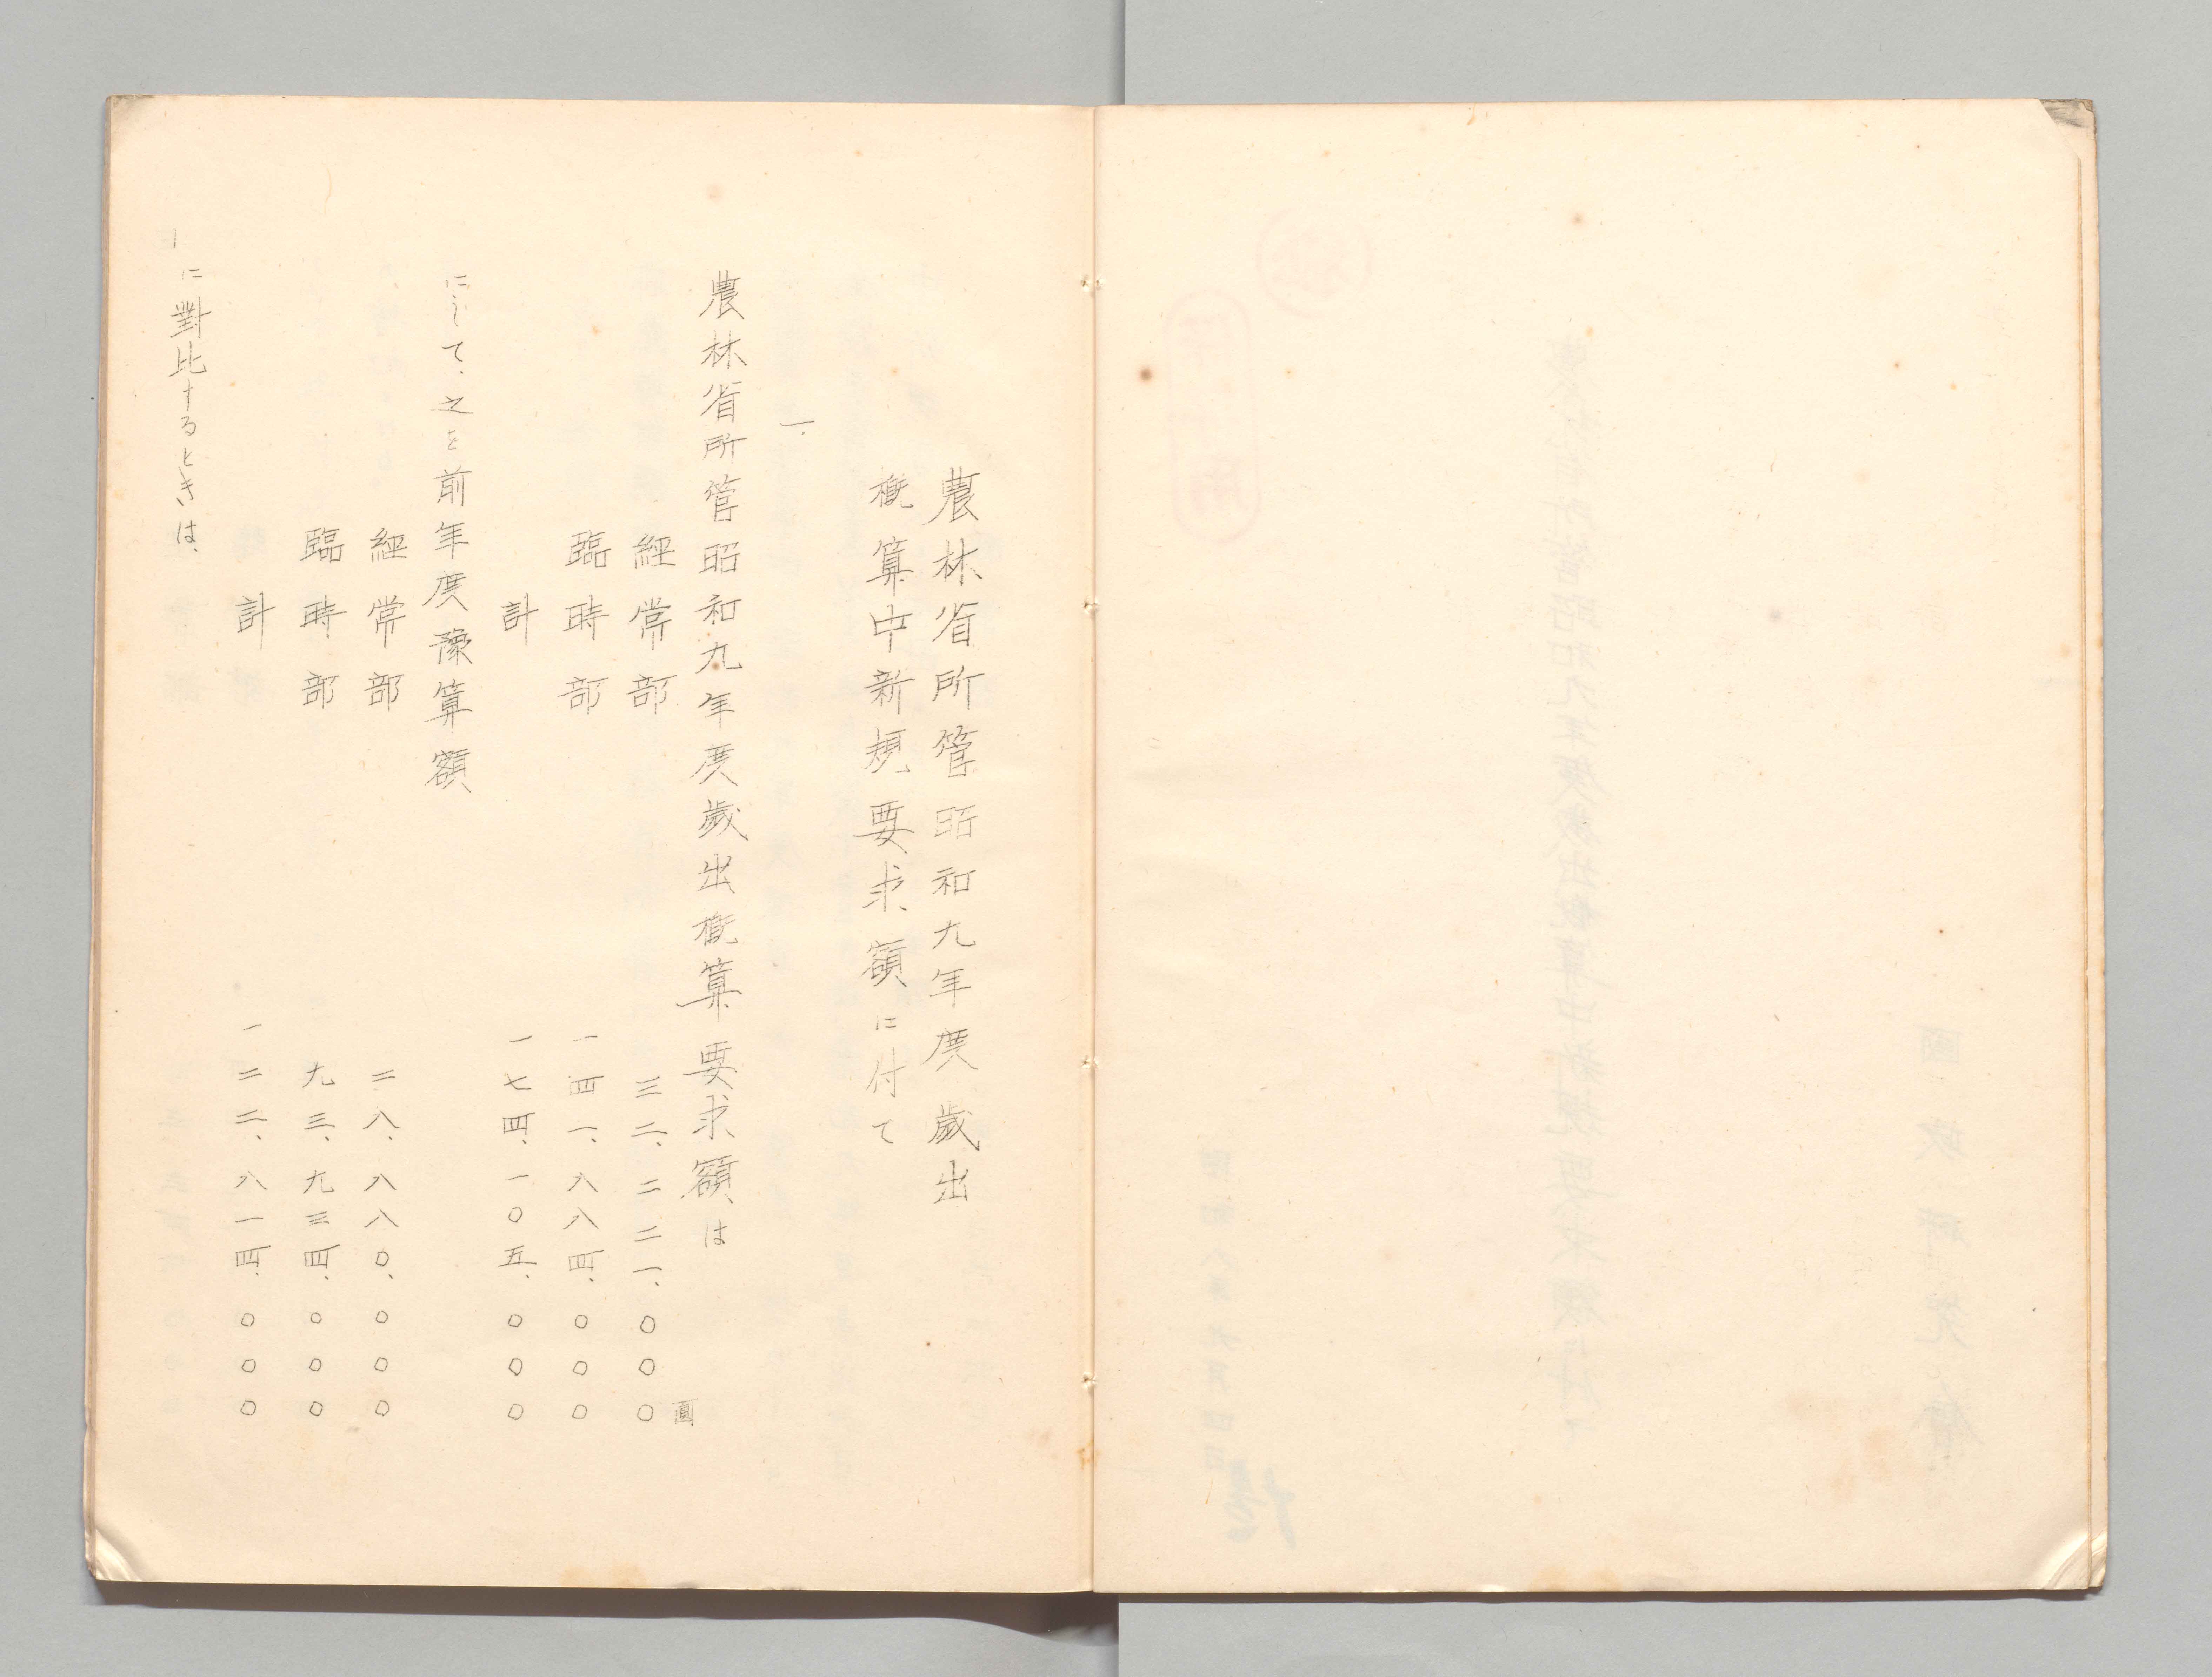 農林省所管昭和九年度歲出
概算中新規要求額に付て
一、
農林省所管昭和九年度歲出概算要求額は
經常部 三二、二二一、〇〇〇圓
臨時部 一四一、八八四、〇〇〇
計 一七四、一〇五、〇〇〇
にして、之を前年度豫算額
經常部 二八、八八〇、〇〇〇
臨時部 九三、九三四、〇〇〇
計 一二二、八一四、〇〇〇
に對比するときは、